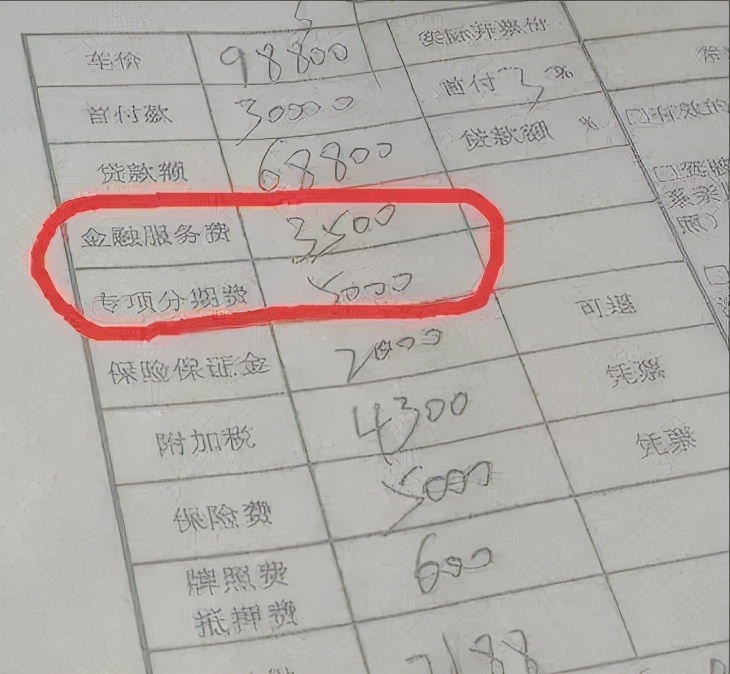 车价 98800 实际开票价
首付款 30000 首付 3 %
贷款额 68800 贷款额 %
金融服务费 3500
专项分期费 5000
保险保证金 2000 可退
附加税 4300 凭票
保险费 5000 凭票
牌照费 600
抵押费
7188